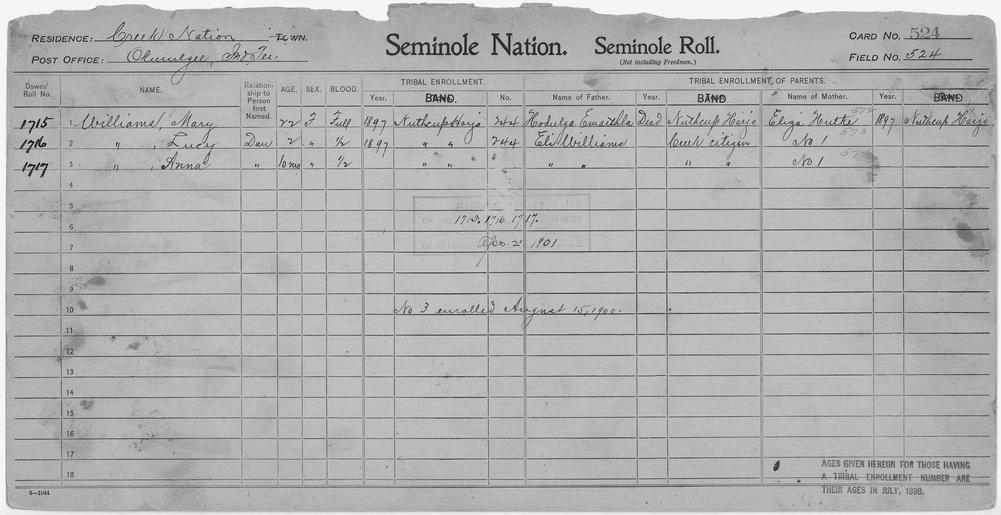 RESIDENCE: Creek Nation TOWN.
POST OFFICE: Okmulgee, Ind Ter.
Seminole Nation. Seminole Roll.
(Not including Freedmen.)
CARD NO. 524
FIELD NO. 524
Dawes' Roll No. NAME. Relationship to Person first Named. AGE. SEX. BLOOD. TRIBAL ENROLLMENT. TRIBAL ENROLLMENT OF PARENTS.
Year. BAND. No. Name of Father. Year. BAND Name of Mother. Year. BAND
1715 1 Williams, Mary 22 F Full 1897 Nuthcup Harjo 244 Hodulga Emarthla Dead Nuthcup Harjo Eliza 1897 Nuthcup Harjo
1716 2 " , Lucy Dau 2 " 1/2 1897 " " 244 Eli Williams Creek citizen No 1
1717 3 " , Anna " 10mo " 1/2 " " " " No 1
4
5
1715. 1716. 1717.
6
7 Apr. 2 1901
8
9
10 No 3 enrolled August 15, 1900.
11
12
13
14
15
16
17
18
AGES GIVEN HEREON FOR THOSE HAVING
A TRIBAL ENROLLMENT NUMBER ARE
THEIR AGES IN JULY, 1898.
6—1044